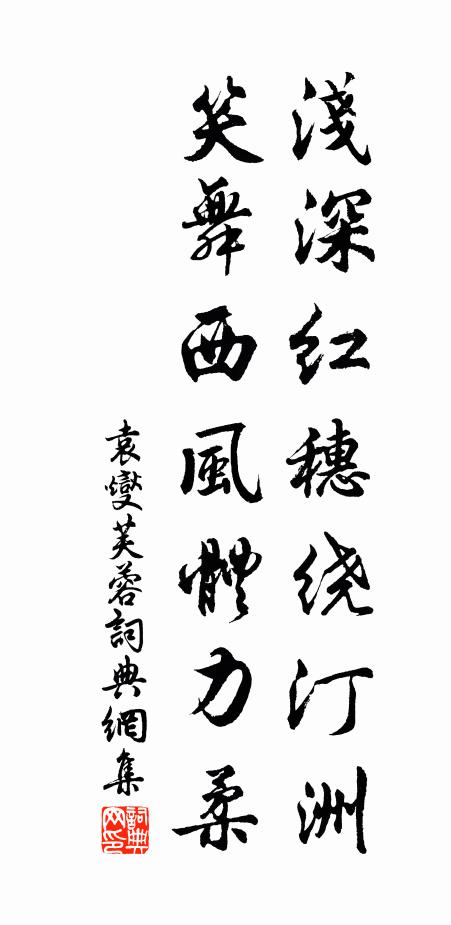 淺深紅穗绕汀洲
笑舞西風體力柔
袁燮芙蓉詞典網集
詞典网印